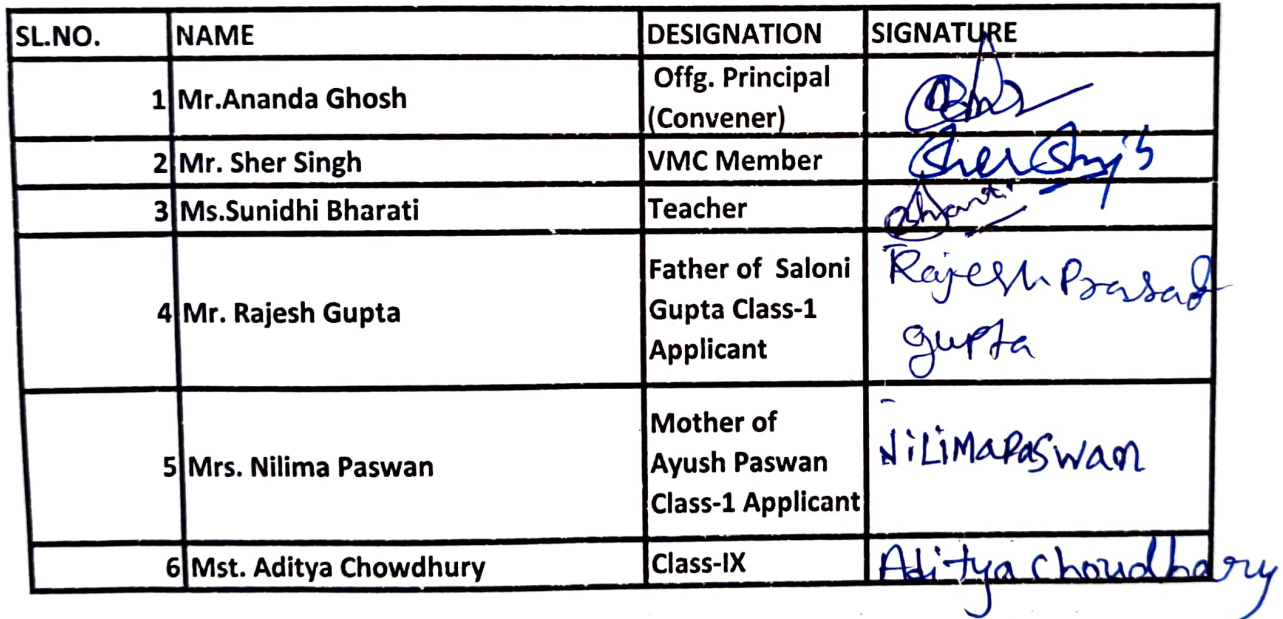 SL.NO. NAME DESIGNATION SIGNATURE
1 Mr.Ananda Ghosh Offg. Principal
(Convener)
2 Mr. Sher Singh VMC Member Sher Singh
3 Ms.Sunidhi Bharati Teacher
4 Mr. Rajesh Gupta Father of Saloni
Gupta Class-1
Applicant
Rajesh Prasad
gupta
5 Mrs. Nilima Paswan Mother of
Ayush Paswan
Class-1 Applicant
NiLiMAPASwan
6 Mst. Aditya Chowdhury Class-IX Aditya Choudhary